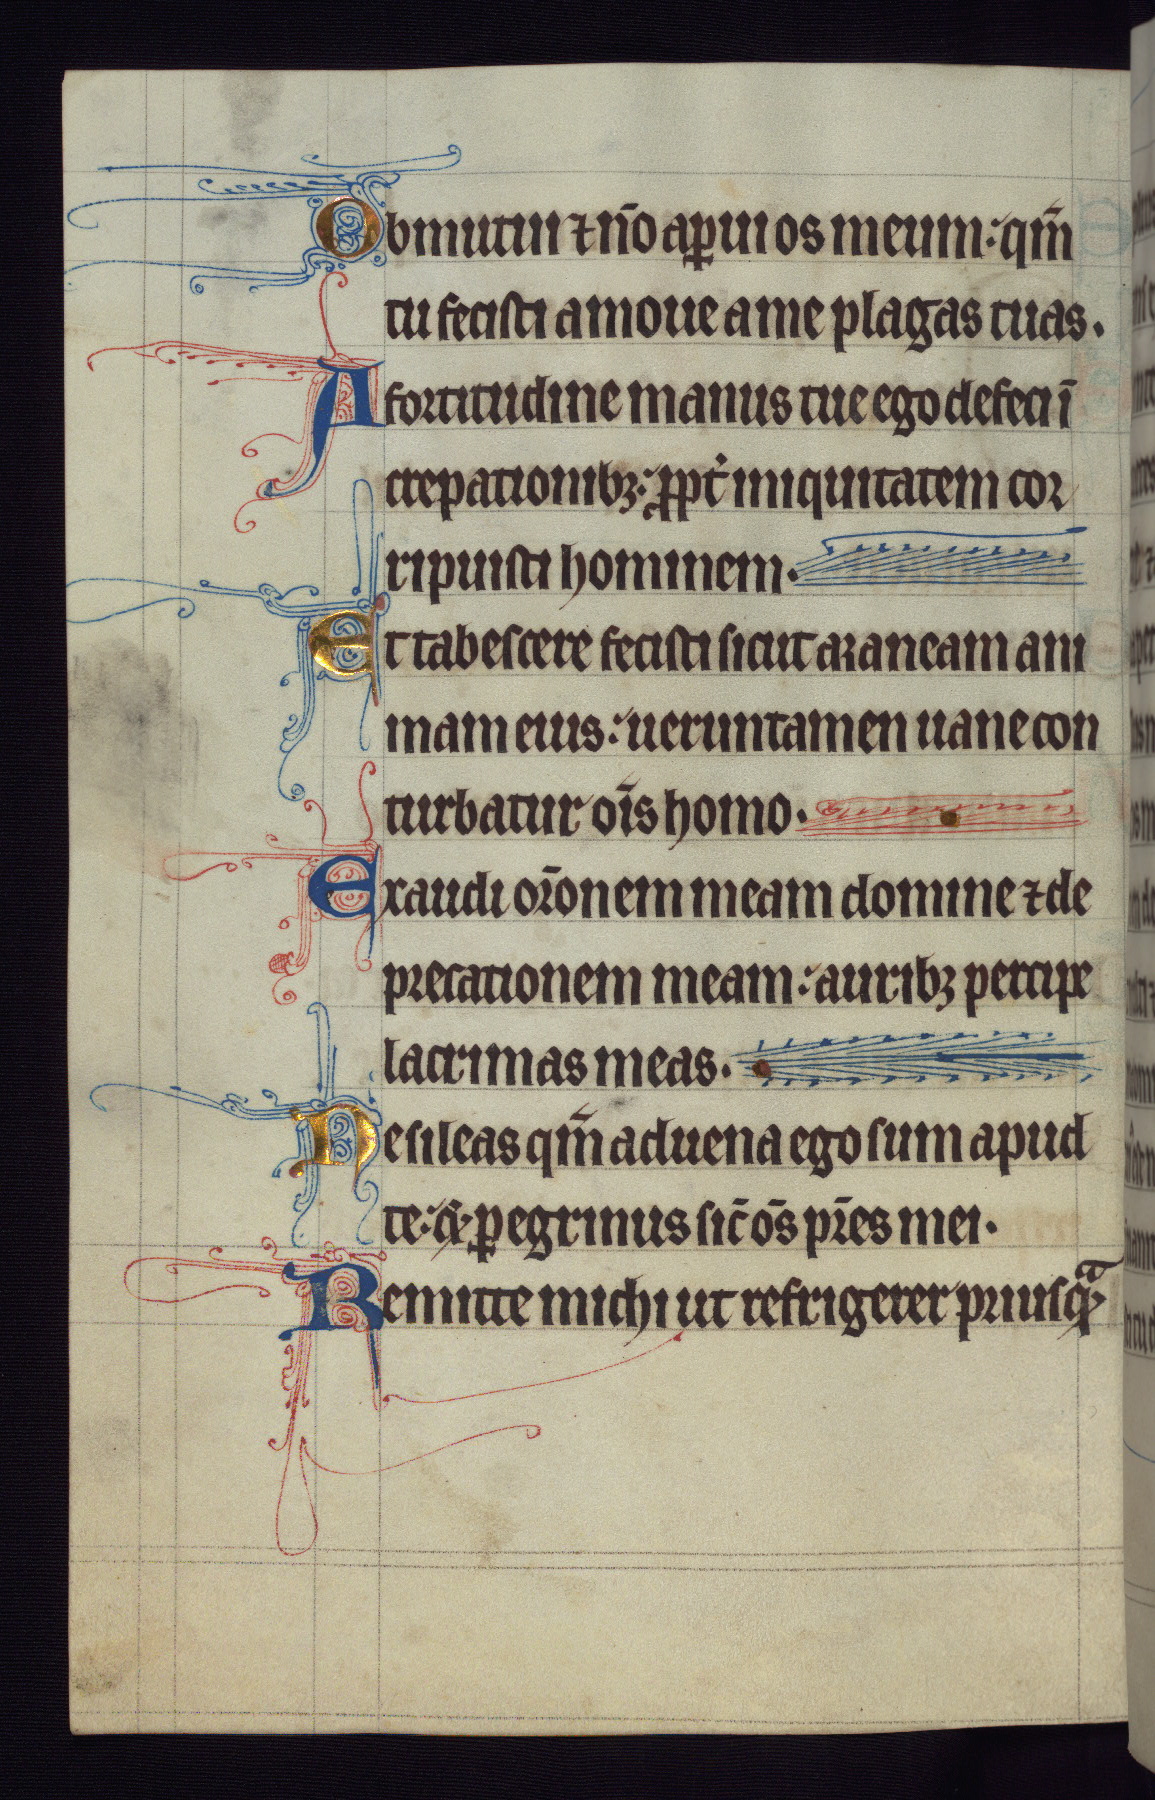 Obmutui ⁊ nō aꝑui os meum: qm̄
tu fecisti amoue a me plagas tuas.
A fortitudine manus tue ego defeci ī
crepationibꝫ: ꝓpt̉ iniquitatem cor
ripuisti hominem.
Et tabescere fecisti sicut araneam ani
mam eius: ueruntamen uane con
turbatur oīs homo.
Exaudi or̄onem meam domine ⁊ de
precationem meam: auribꝫ percipe
lacrimas meas.
Ne sileas qm̄ aduena ego sum apud
te: ⁊ ꝑegrinus sic̄ om̄s pr̄es mei.
Remitte michi ut refrigerer priusqᵃ